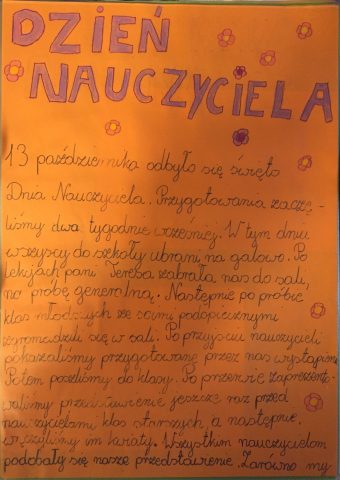 DZIEŃ
NAUCZYCIELA
13 października odbyło się święto
Dnia Nauczyciela. Przygotowania zaczę-
liśmy dwa tygodnie wcześniej. W tym dniu
wszyscy do szkoły ubrani na galowo. Po
lekcjach pani Teresa zabrała nas do sali,
na próbę generalną. Następnie po próbie
klas młodszych ze swimi podopiecznymi
zgromadzili się w sali. Po przyjściu nauczycieli
pokazaliśmy przygotowane przez nas wystąpienie
Potem poszliśmy do klasy. Po przerwie zaprezento-
waliśmy przedstawienie jeszcze raz przed
nauczycielami klas starszych, a następnie
wręczyliśmy im kwiaty. Wszystkim nauczycielom
podobały się nasze przedstawienie. Zarówno my